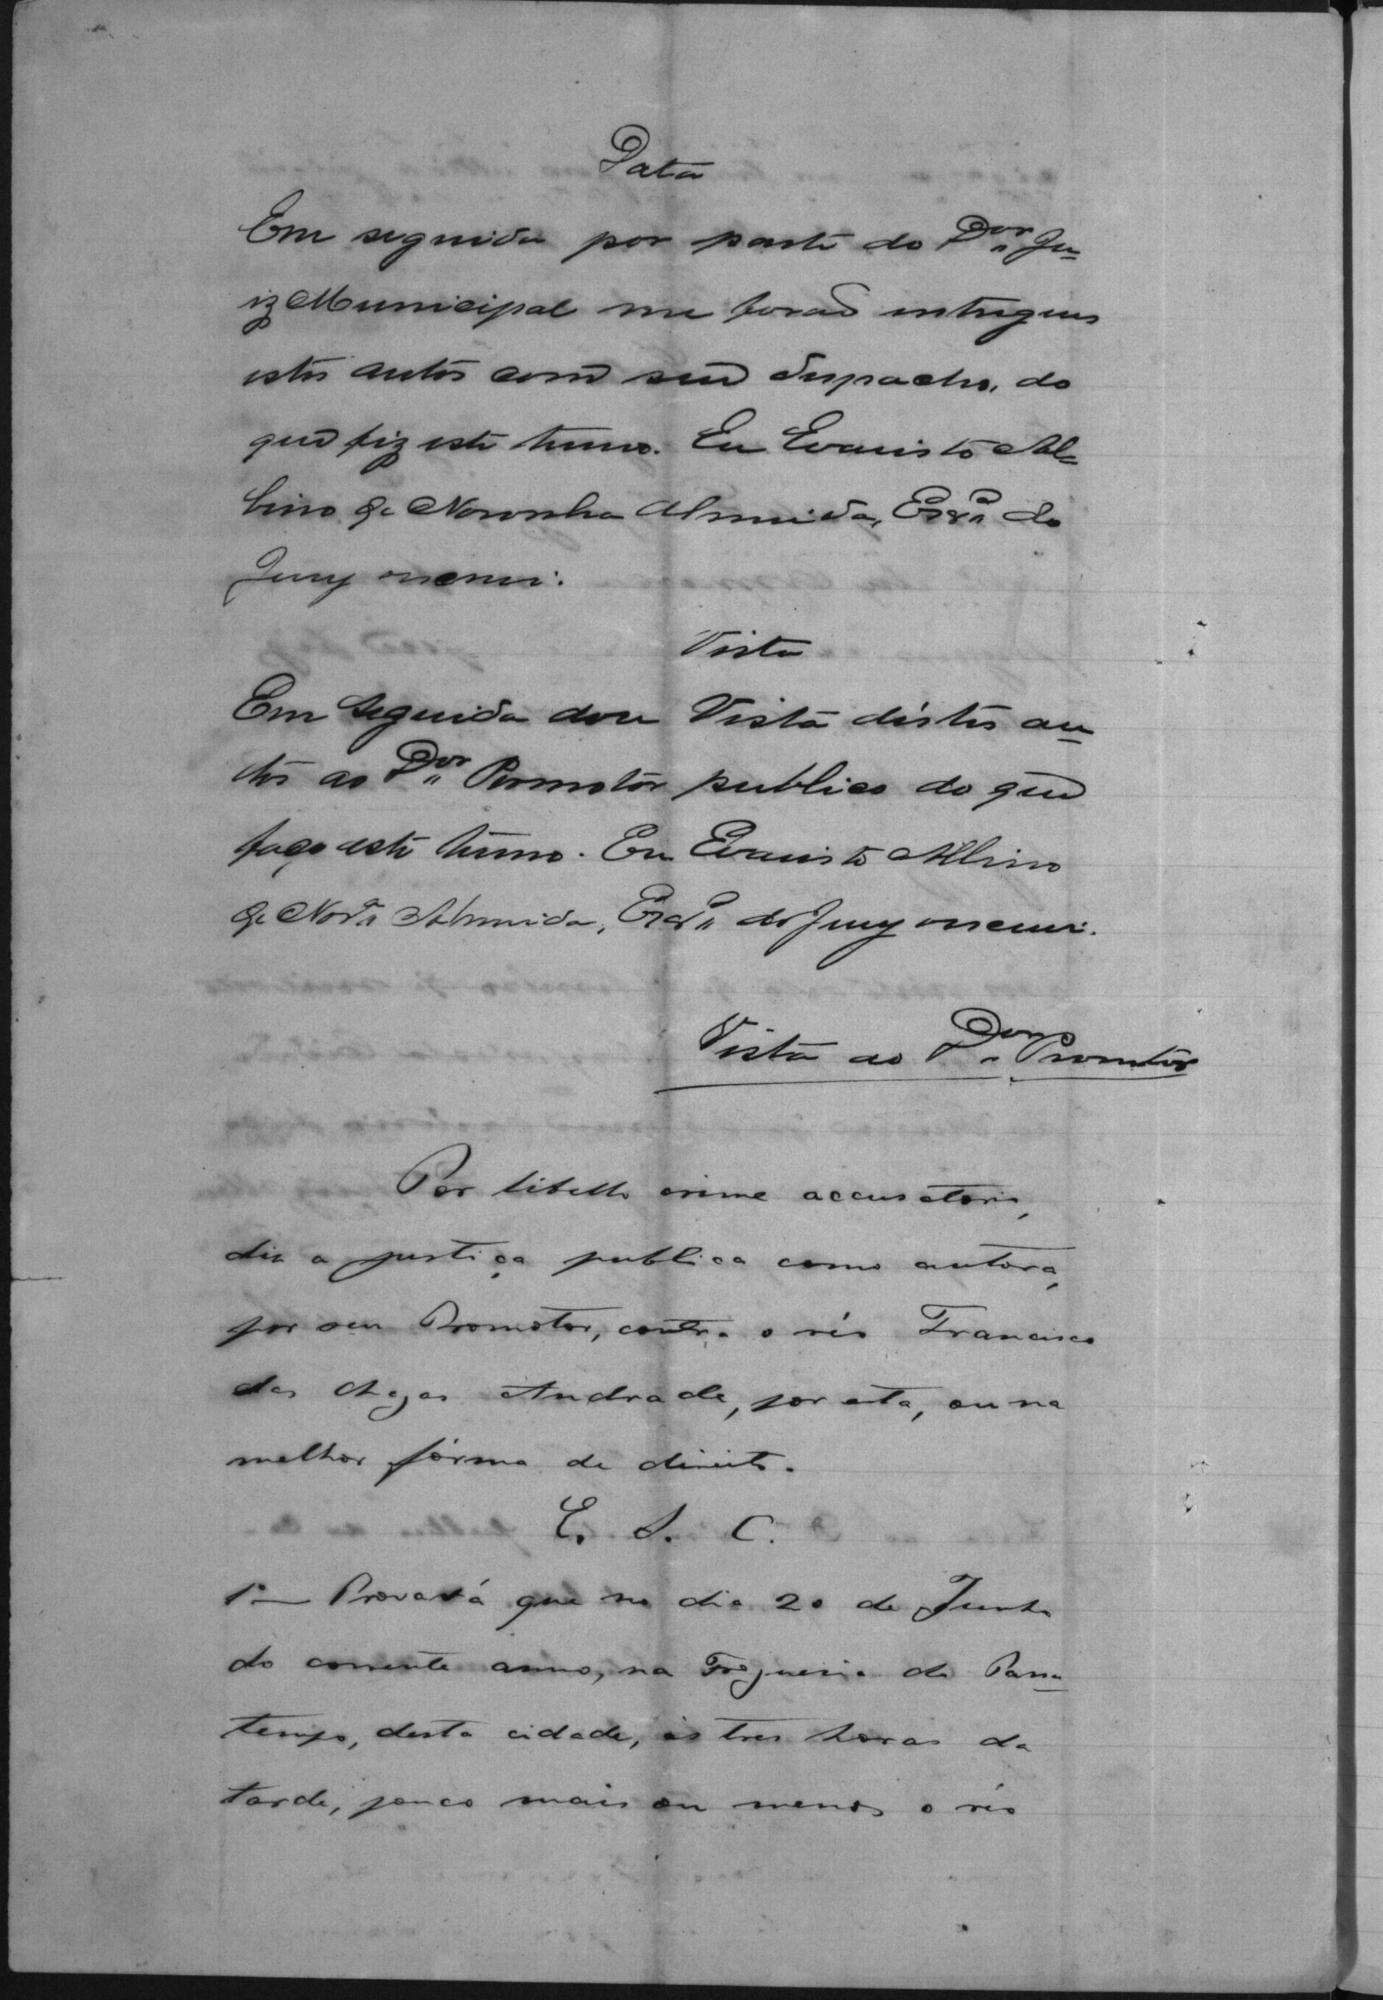 Data
Em seguida por parte do D.or Ju-
iz Municipal me forão entregues
estes autos com seu despacho, do
que fiz este termo. Eu Evaristo Al-
bino de Noronha Almeida, Escr.m do
Jury escrevi.
Vista
Em seguida dou Vista déstes au-
tos ao D.or Promotor publico do que
faço este termo. Eu Evaristo Albino
de Nor.a Almeida, Escr.m do Jury escrevi.
Vista ao D.or Promotor
Por libello crime accusatorio,
diz a justiça publica como autora,
por seu Promotor, contra o réo Francisco
das Chagas Andrade, por esta, ou na
melhor fórma de direito.
E. S. C.
1º— Provará que no dia 20 de Junho
do corrente anno, na Freguesia do Passa-
tempo, desta cidade, ás tres horas da
tarde, pouco mais ou menos o réo